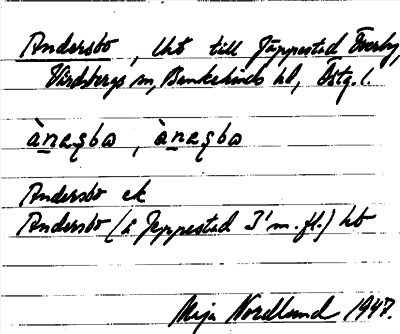 Andersbo, lht till Jäppestad Överby,
Vårdsbergs sn, Bankekinds hd, Östg. l.
ànaʂbo, ànaʂbo
Andersbo ek
Andersbo (å Jeppestad 3' m. fl.) hb
Maja Nordlund 1947.